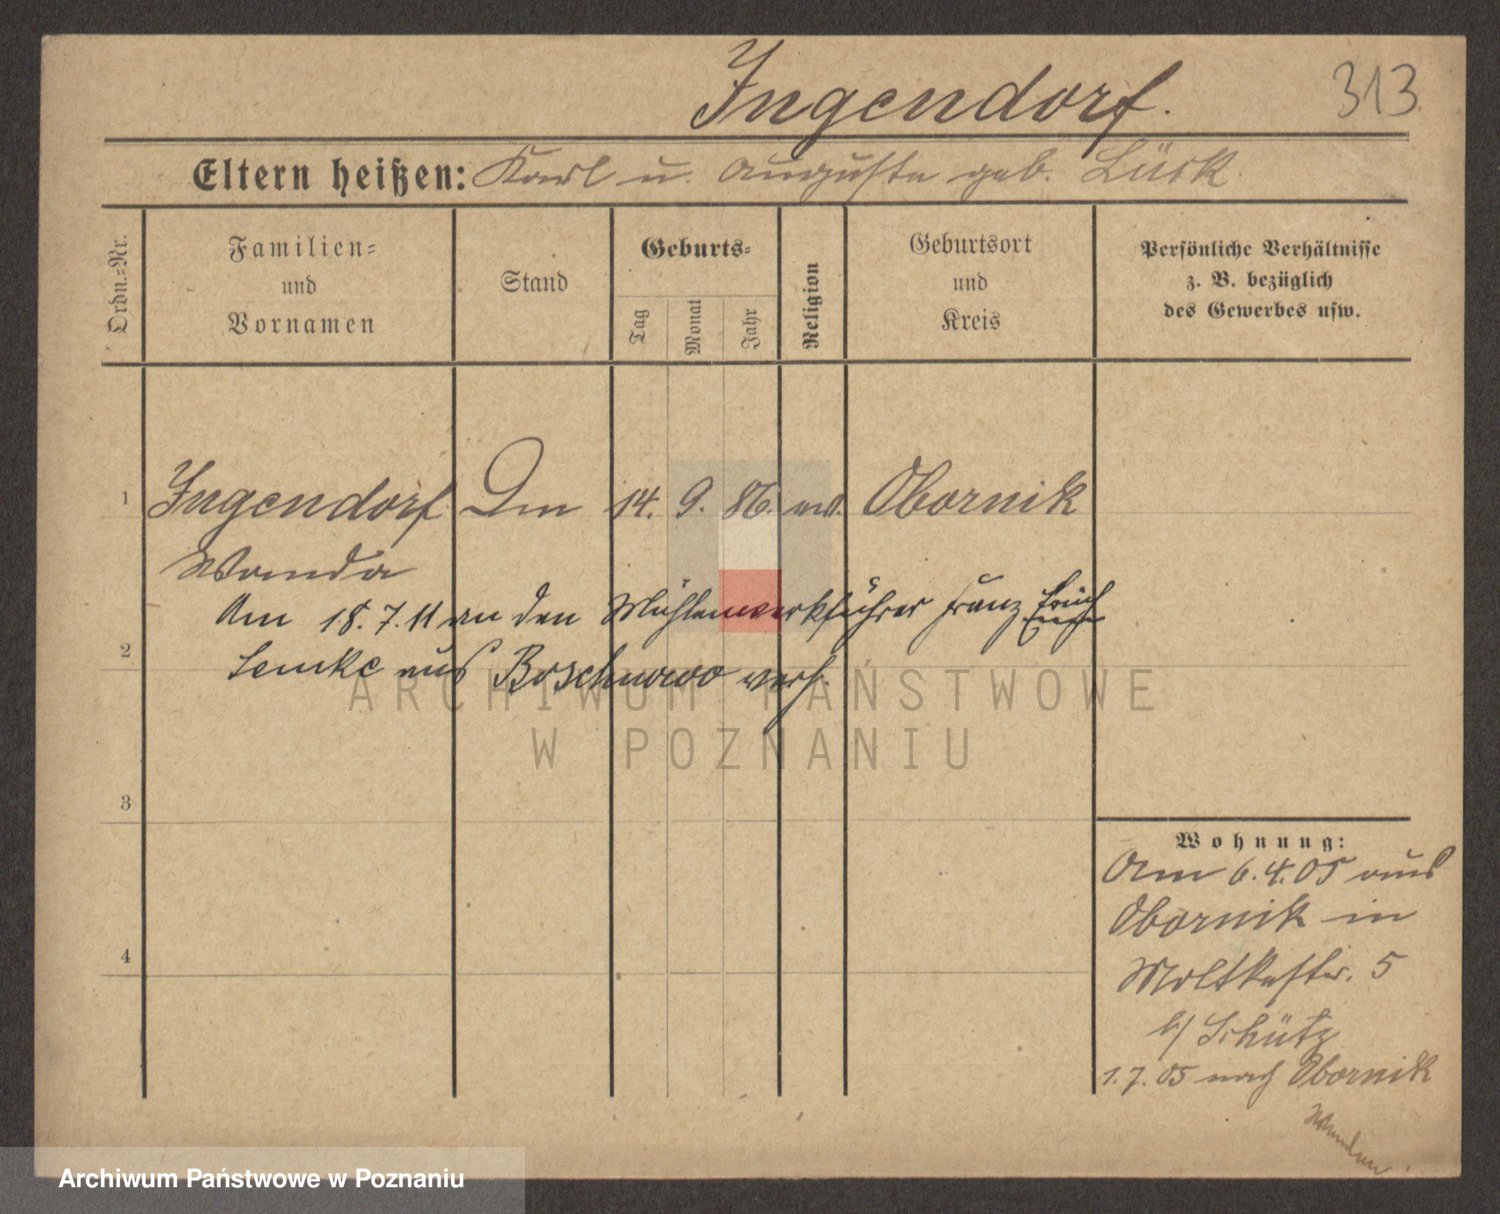 Ingendorf.
313
Eltern heißen: Karl u. Auguste geb. Lück.
Ordn.-Nr.
Familien-
und
Vornamen
Stand
Geburts-
Tag
Monat
Jahr
Religion
Geburtsort
und
Kreis
Persönliche Verhältnisse
z. B. bezüglich
des Gewerbes usw.
1 Ingendorf 14. 9. 86. ev. Obornik
Wanda
Am 18.7.11 an den Mühlenwerkführer Franz Erich
2 Lemke aus Boschnowo verh.
3
4
Wohnung:
Am 6.4.05 aus
Obornik in
Moltkestr. 5
b/ Schütz
1.7.05 nach Obornik
ARCHIWUM PAŃSTWOWE
W POZNANIU
Archiwum Państwowe w Poznaniu